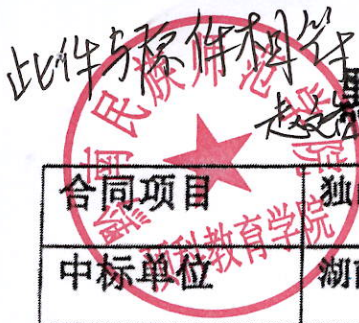 此件与原件相符
黔南民族师范学院
预科教育学院
合同项目 独
中标单位 湖